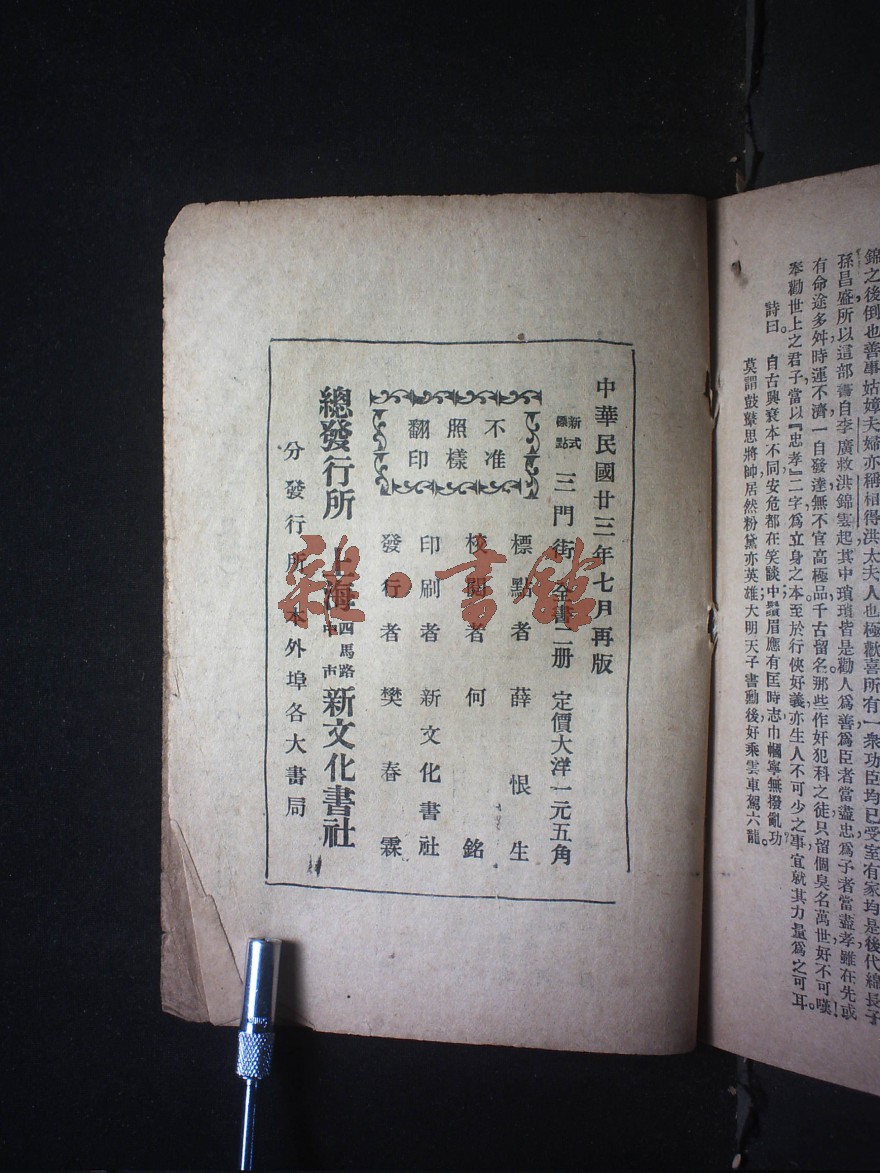 錦之後倒也善事姑嫜夫婦亦稱相得洪太夫人也極歡喜所有一衆功臣均已受室有家均是後代綿長子
孫昌盛所以這部書自李廣救洪錦雲起其中瑣瑣皆是勸人爲善爲臣者當盡忠爲子者當盡孝雖在先或
有命途多舛時運不濟一自發達無不官高極品千古留名那些作奸犯科之徒只留個臭名萬世好不可嘆!
奉勸世上之君子當以『忠孝』二字爲立身之本至於行俠好義亦生人不可少之事宜就其力量爲之可耳。
詩曰。
自古興衰本不同安危都在笑談中鬚眉應有匡時志巾幗寧無撥亂功
莫謂鼓鼙思將帥居然粉黛亦英雄大明天子書勳後好乘雲車駕六龍。
中華民國廿三年七月再版
新式標點 三門街 全書二册 定價大洋一元五角
標點者 薛恨生
校閱者 何銘
印刷者 新文化書社
發行者 樊春霖
不准
照樣
翻印
總發行所 上海四馬路中市新文化書社
分發行所 本外埠各大書局
雜·書館